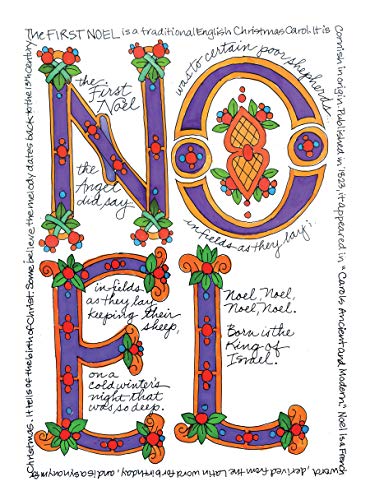 The FIRST NOEL is a traditional English Christmas Carol. It is
Cornish in origin. Published in 1823, it appeared in "Carols Ancient and Modern". Noel is a French
word, derived from the Latin word for birthday, and is a synonym for
Christmas. It tells of the birth of Christ. Some believe the melody dates back to the 13th century.
NOEL
the
First
Noel
the
Angel
did say
was to certain poor shepherds
in fields as they lay;
in fields
as they lay
keeping their
sheep,
on a
cold winter's
night that
was so deep.
Noel, Noel,
Noel, Noel.
Born is the
King of
Israel.